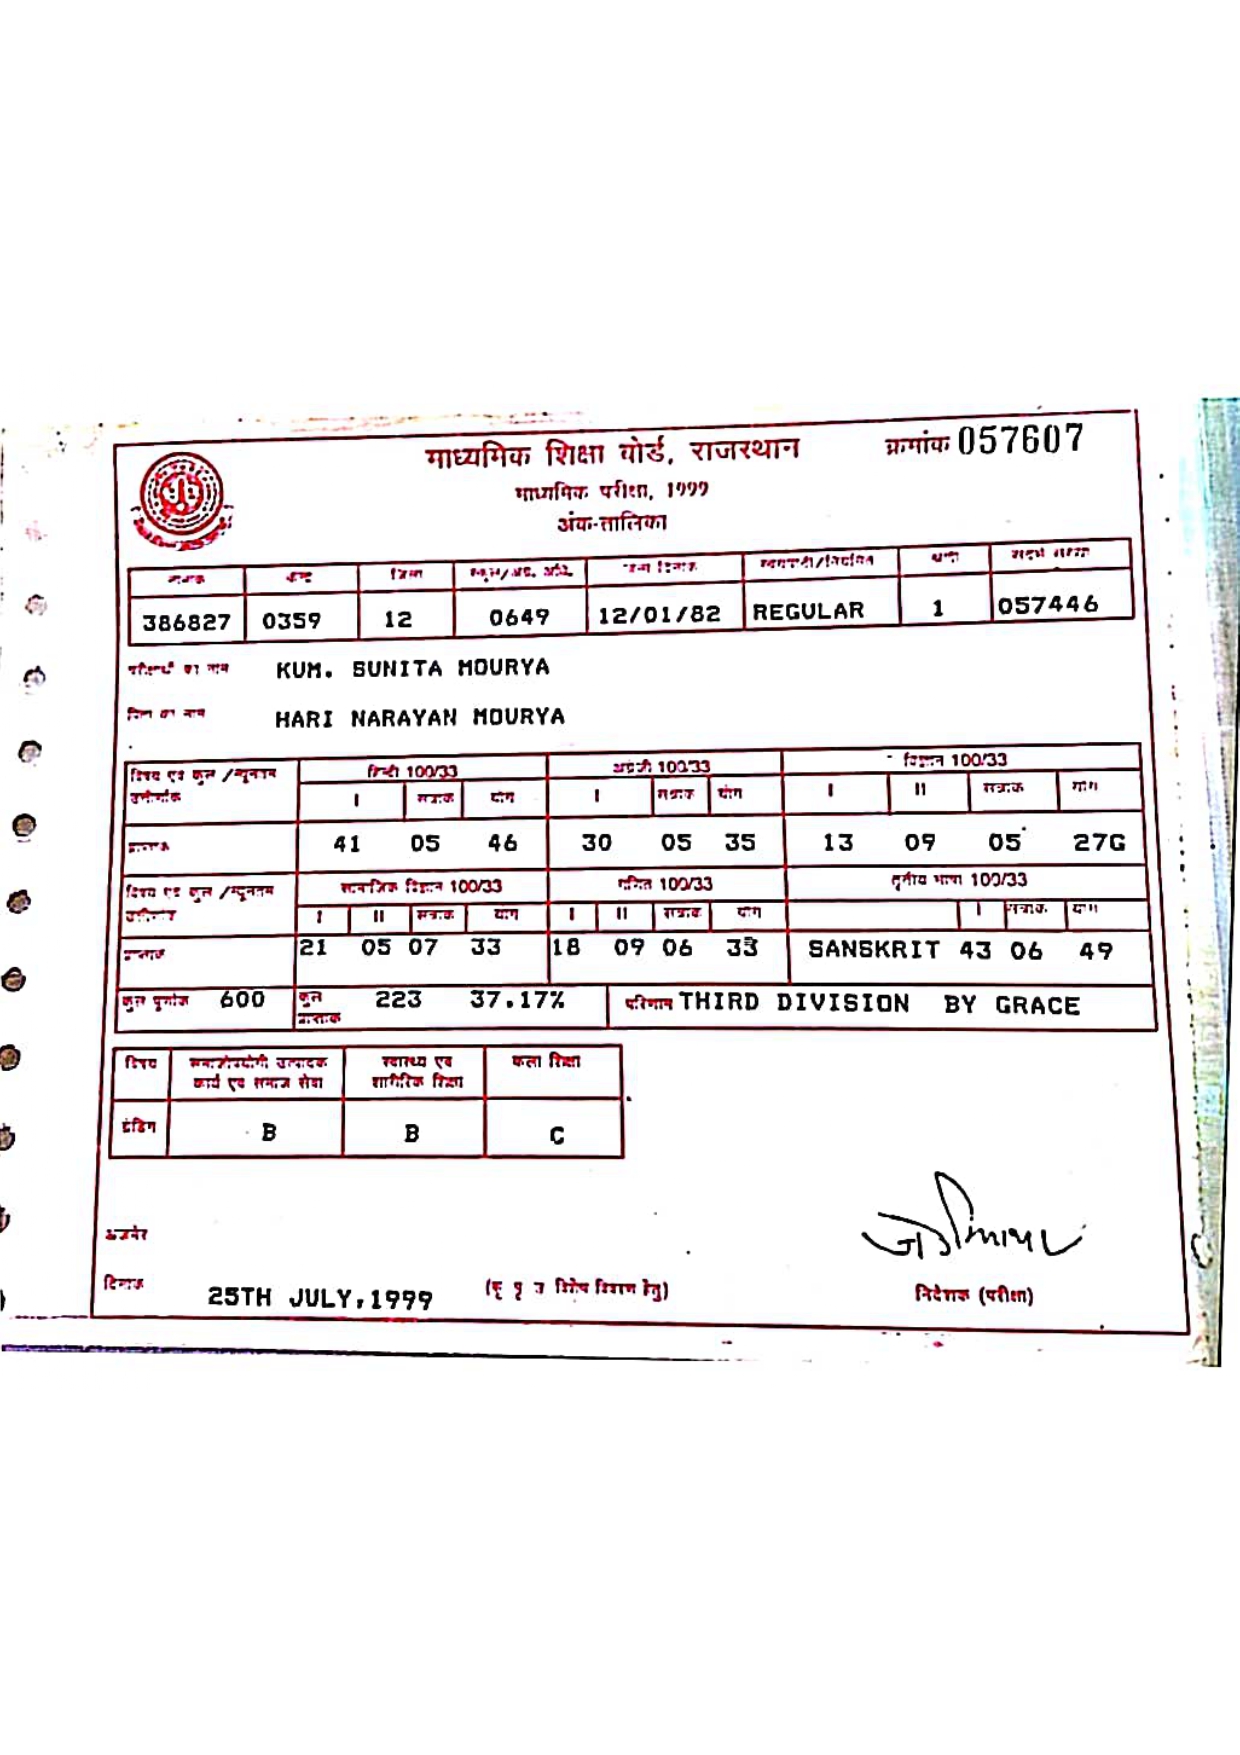 माध्यमिक शिक्षा बोर्ड, राजस्थान
क्रमांक 057607
माध्यमिक परीक्षा, 1999
अंक-तालिका
नामांक केन्द्र जिला स्कूल/अग्र. अधि. जन्म दिनांक स्वयंपाठी/नियमित श्रेणी संदर्भ संख्या
386827 0359 12 0649 12/01/82 REGULAR 1 057446
परीक्षार्थी का नाम KUM. SUNITA MOURYA
पिता का नाम HARI NARAYAN MOURYA
विषय एवं कुल /न्यूनतम हिन्दी 100/33 अंग्रेजी 100/33 विज्ञान 100/33
उत्तीर्णांक I सत्रांक योग I सत्रांक योग I II सत्रांक योग
प्राप्तांक 41 05 46 30 05 35 13 09 05 27G
विषय एवं कुल /न्यूनतम सामाजिक विज्ञान 100/33 गणित 100/33 तृतीय भाषा 100/33
उत्तीर्णांक I II सत्रांक योग I II सत्रांक योग I सत्रांक योग
प्राप्तांक 21 05 07 33 18 09 06 33 SANSKRIT 43 06 49
कुल पूर्णांक 600 कुल प्राप्तांक 223 37.17% परिणाम THIRD DIVISION BY GRACE
विषय समाजोपयोगी उत्पादक स्वास्थ्य एवं कला शिक्षा
कार्य एवं समाज सेवा शारीरिक शिक्षा
ग्रेडिंग B B C
अजमेर
दिनांक 25TH JULY,1999 (कृ पृ उ विशेष विवरण हेतु)
निदेशक (परीक्षा)